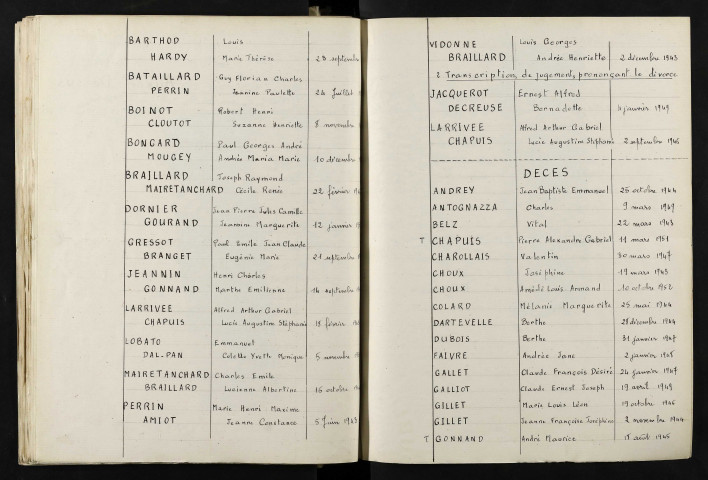 BARTHOD Louis
HARDY Marie Thérèse 28 septembre
BATAILLARD Guy Florian Charles
PERRIN Jeanine Paulette 24 Juillet
BOINOT Robert Henri
CLOUTOT Suzanne Henriette 8 novembre
BONGARD Paul Georges André
MOUGEY Andrée Maria Marie 10 décembre
BRAILLARD Joseph Raymond
MAIRETANCHARD Cécile Renée 22 février
DORNIER Jean Pierre Jules Camille
GOURAND Jeannine Marguerite 12 janvier
GRESSOT Paul Emile Jean Claude
BRANGET Eugénie Marie 21 septembre
JEANNIN Henri Charles
GONNAND Marthe Emilienne 14 septembre
LARRIVEE Alfred Arthur Gabriel
CHAPUIS Lucie Augustine Stéphanie 18 février
LOBATO Emmanuel
DAL-PAN Colette Yvette Monique 5 novembre
MAIRETANCHARD Charles Emile
BRAILLARD Lucienne Albertine 16 octobre
PERRIN Marie Henri Maxime
AMIOT Jeanne Constance 5 Juin 1943
VIDONNE Louis Georges
BRAILLARD Andrée Henriette 2 décembre 1943
2 Transcription de jugements prononçant le divorce
JACQUEROT Ernest Alfred
DECREUSE Bernadette janvier 1949
LARRIVEE Alfred Arthur Gabriel
CHAPUIS Lucie Augustine Stéphanie 2 septembre 1946
DECES
ANDREY Jean Baptiste Emmanuel 26 octobre 1944
ANTOGNAZZA Charles 9 mars 1949
BELZ Vital 22 mars 1943
T CHAPUIS Pierre Alexandre Gabriel 11 mars 1951
CHAROLLAIS Valentin 30 mars 1947
CHOUX Joséphine 19 mars 1943
CHOUX Amédé Louis Armand 10 octobre 1952
COLARD Mélanie Marguerite 25 mai 1944
DARTEVELLE Berthe 28 décembre 1944
DUBOIS Berthe 31 janvier 1947
FAIVRE Andrée Jane 2 janvier
GALLET Claude François Désiré 24 janvier 1947
GALLIOT Claude Ernest Joseph 19 avril 1949
GILLET Marie Louis Léon 19 octobre 1946
GILLET Jeanne Françoise Joséphine 2 novembre 1944
T GONNAND André Maurice août 1945